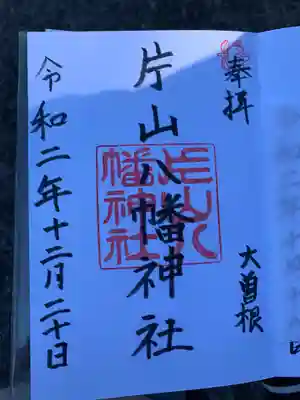 奉拝
大曽根
片山八幡神社
片山八幡神社
令和二年十二月二十日